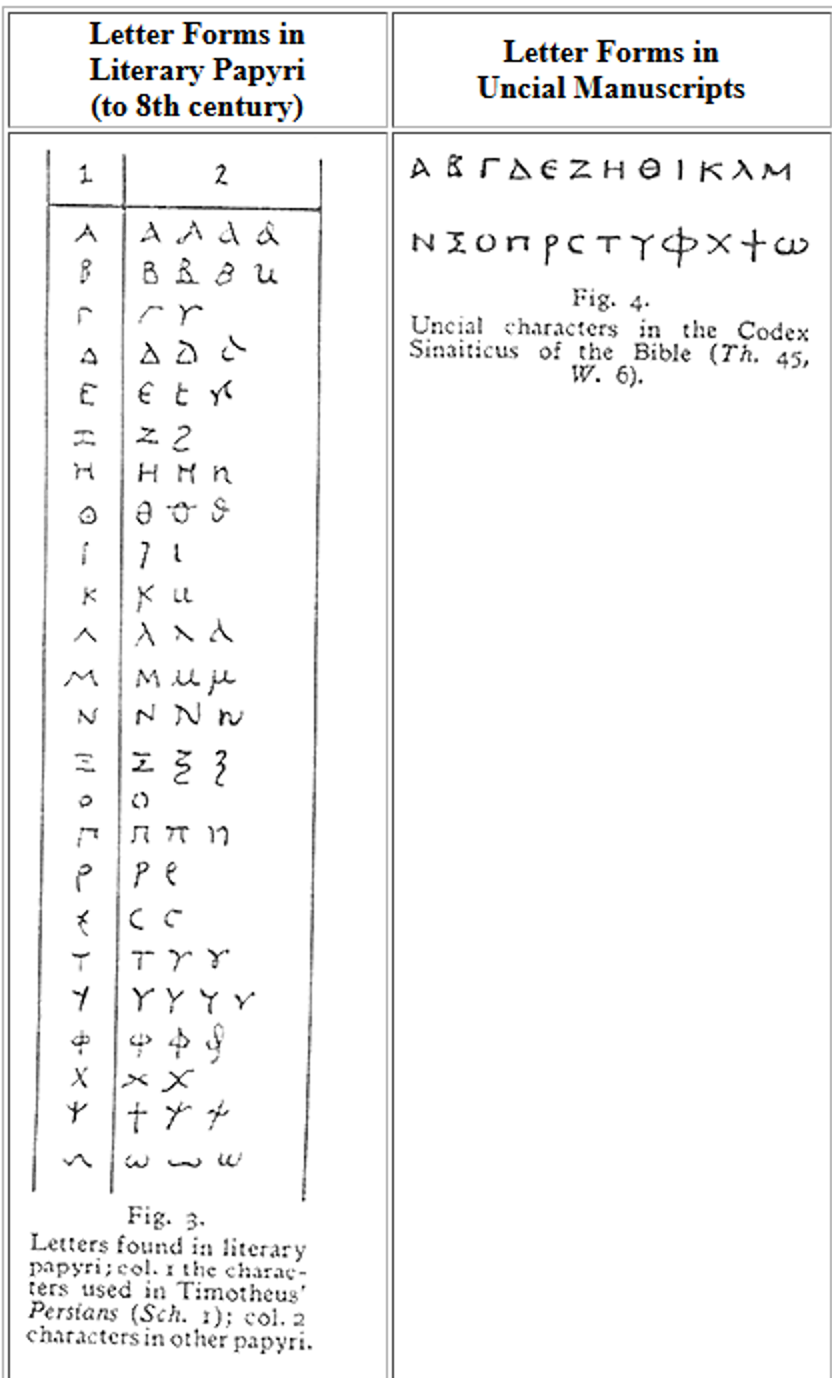 Letter Forms in
Literary Papyri
(to 8th century)
Letter Forms in
Uncial Manuscripts
1 2
Α Α Α Α α
Β Β Β Β u
Γ Γ Υ
Δ Δ Δ
Ε Ε Ε
Ζ Ζ
Η Η Η n
Θ Θ ϑ
Ι Ι ι
Κ Κ u
Λ λ λ λ
Μ Μ μ μ
Ν Ν Ν Ν
Ξ Ξ ξ ξ
Ο Ο
Π Π π η
Ρ Ρ ρ
Ϲ Ϲ
Τ Τ Τ Τ
Υ Υ Υ Υ Υ
Φ Φ Φ Φ
Χ Χ Χ
Ψ Ψ Ψ Ψ
ω ω ω
Fig. 3.
Letters found in literary
papyri; col. 1 the charac-
ters used in Timotheus'
Persians (Sch. 1); col. 2
characters in other papyri.
Α Β Γ Δ Ε Ζ Η Θ Ι Κ λ Μ
Ν Ξ Ο Π Ρ Ϲ Τ Υ Φ Χ Ψ ω
Fig. 4.
Uncial characters in the Codex
Sinaiticus of the Bible (Th. 45,
W. 6).